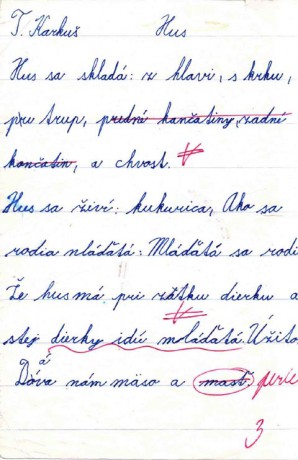 T. Karkuš Hus
Hus sa skladá: z hlavi, s krku,
pru trup, predné kančatiny, zadní
končatin, a chvost. V
Hus sa živí: kukurica, Ako sa
rodia nláďatá: Mláďatá sa rodi
Že hus má pri zátku dierku a
stej dierky idú mláďatá. Úžito
V
á
Dáva nám mäso a masť, perie
3